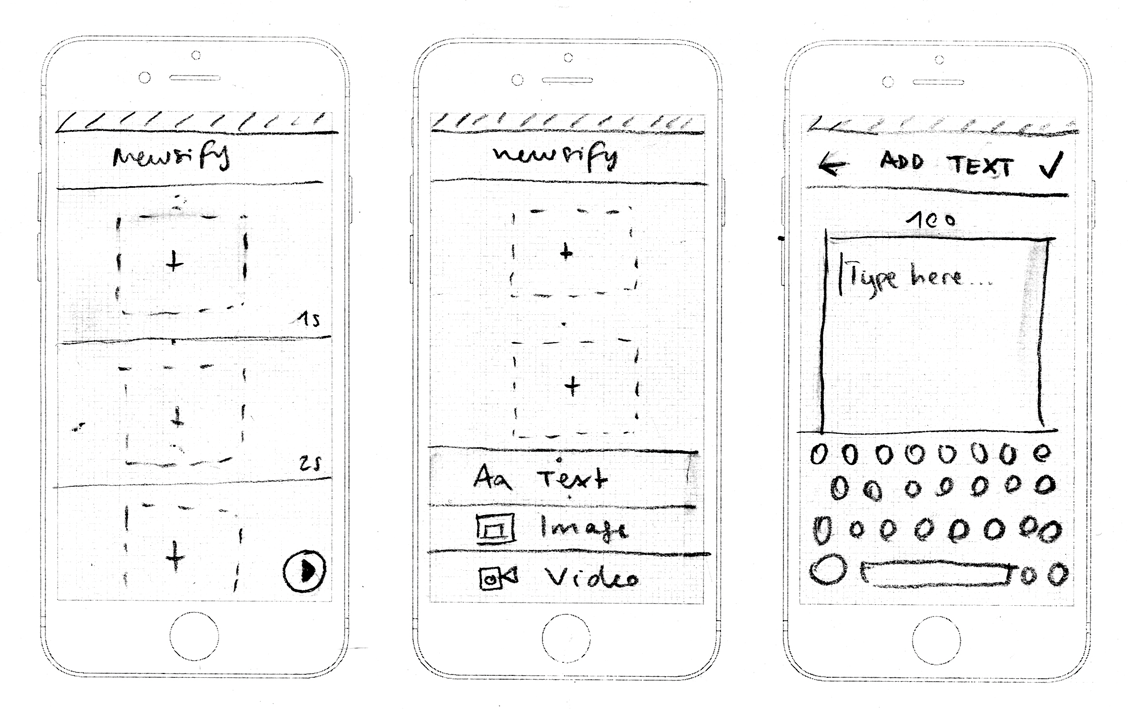 Newsify
+
1s
+
2s
+
newsify
+
+
Aa Text
Image
Video
← ADD TEXT ✓
100
Type here...